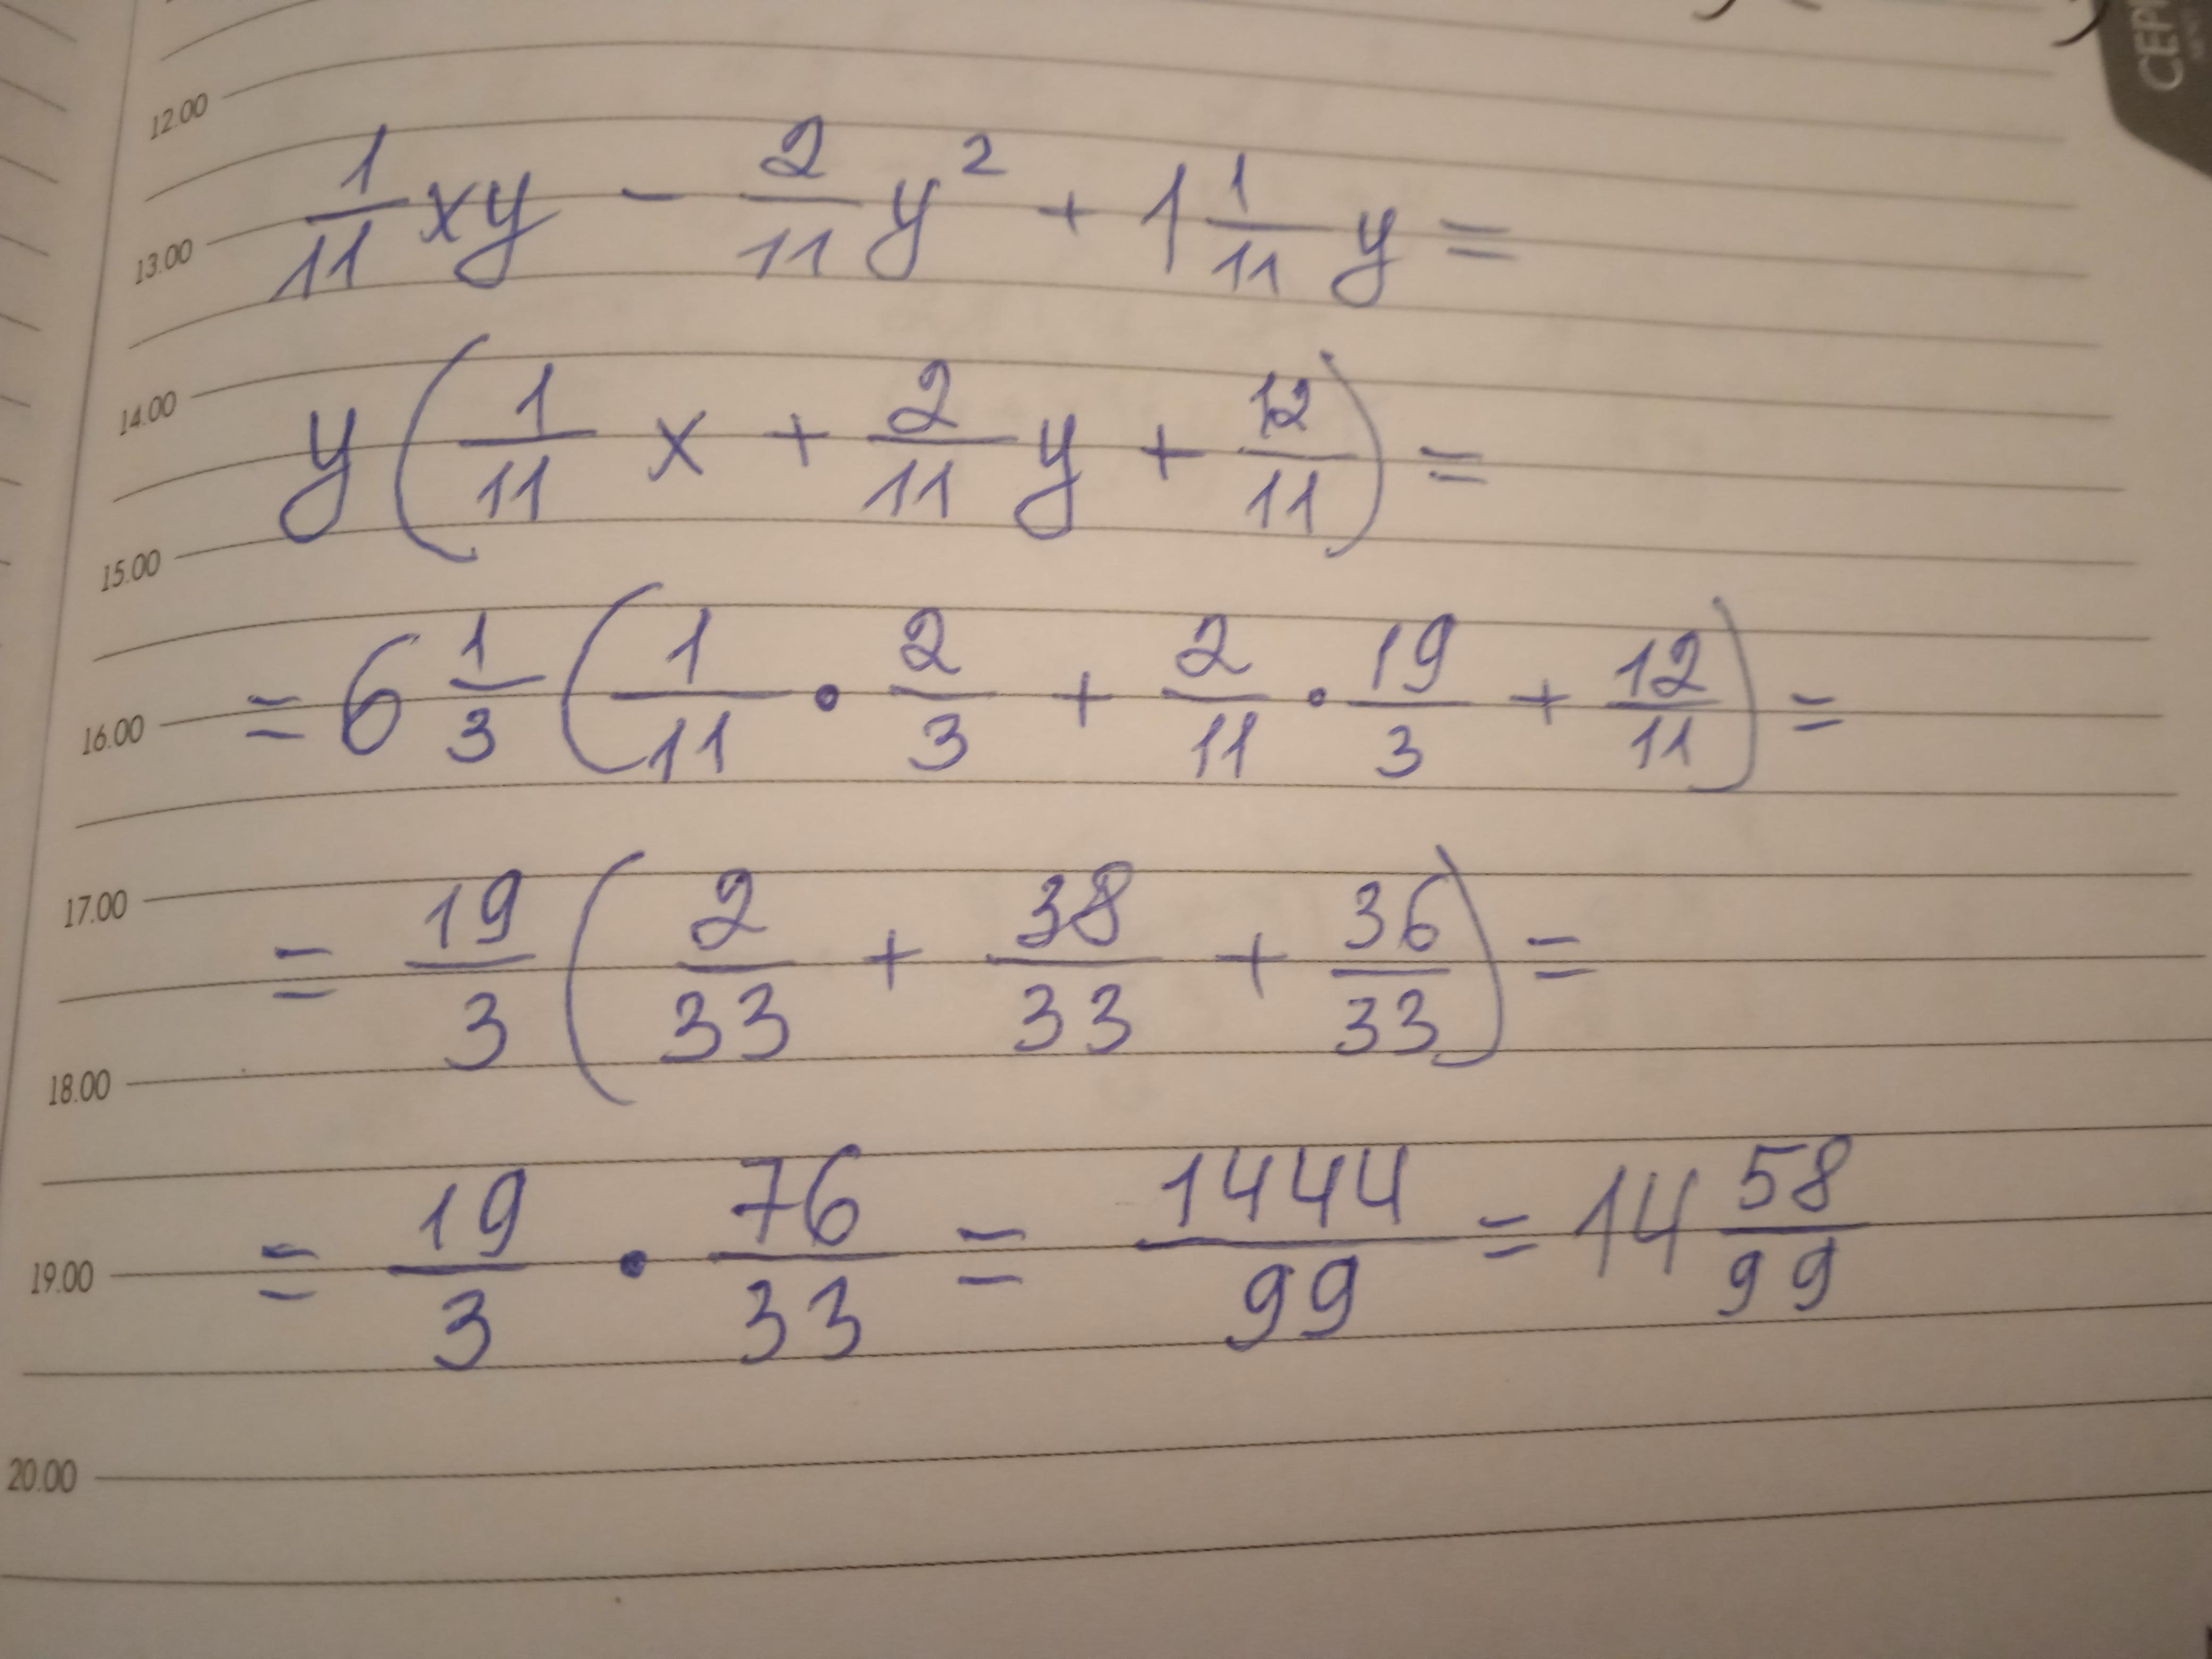 СЕРИ
12.00
1/11 xy - 2/11 y² + 1 1/11 y =
13.00
14.00
y(1/11 x + 2/11 y + 12/11) =
15.00
= 6 1/3 (1/11 · 2/3 + 2/11 · 19/3 + 12/11) =
16.00
17.00
= 19/3 (2/33 + 38/33 + 36/33) =
18.00
= 19/3 · 76/33 = 1444/99 = 14 58/99
19.00
20.00